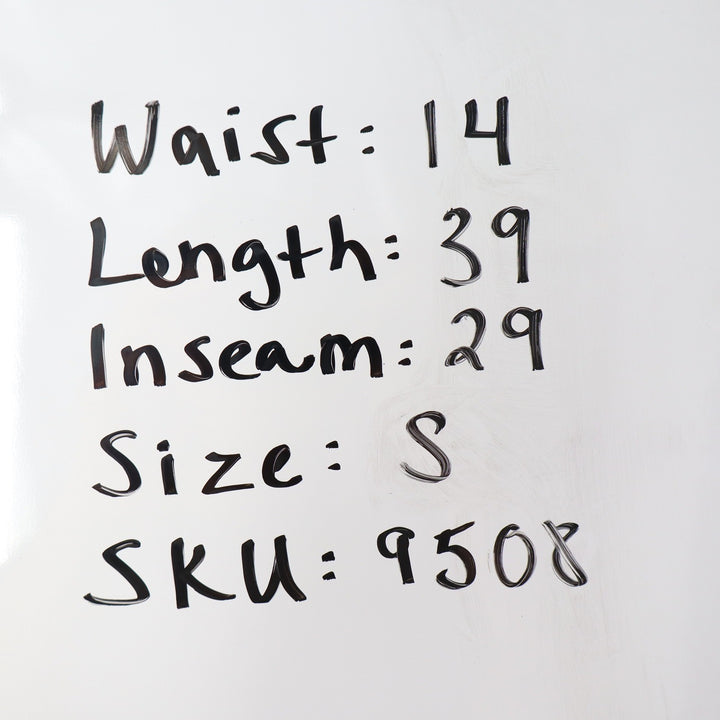 Waist: 14
Length: 39
Inseam: 29
Size: S
SKU: 9508